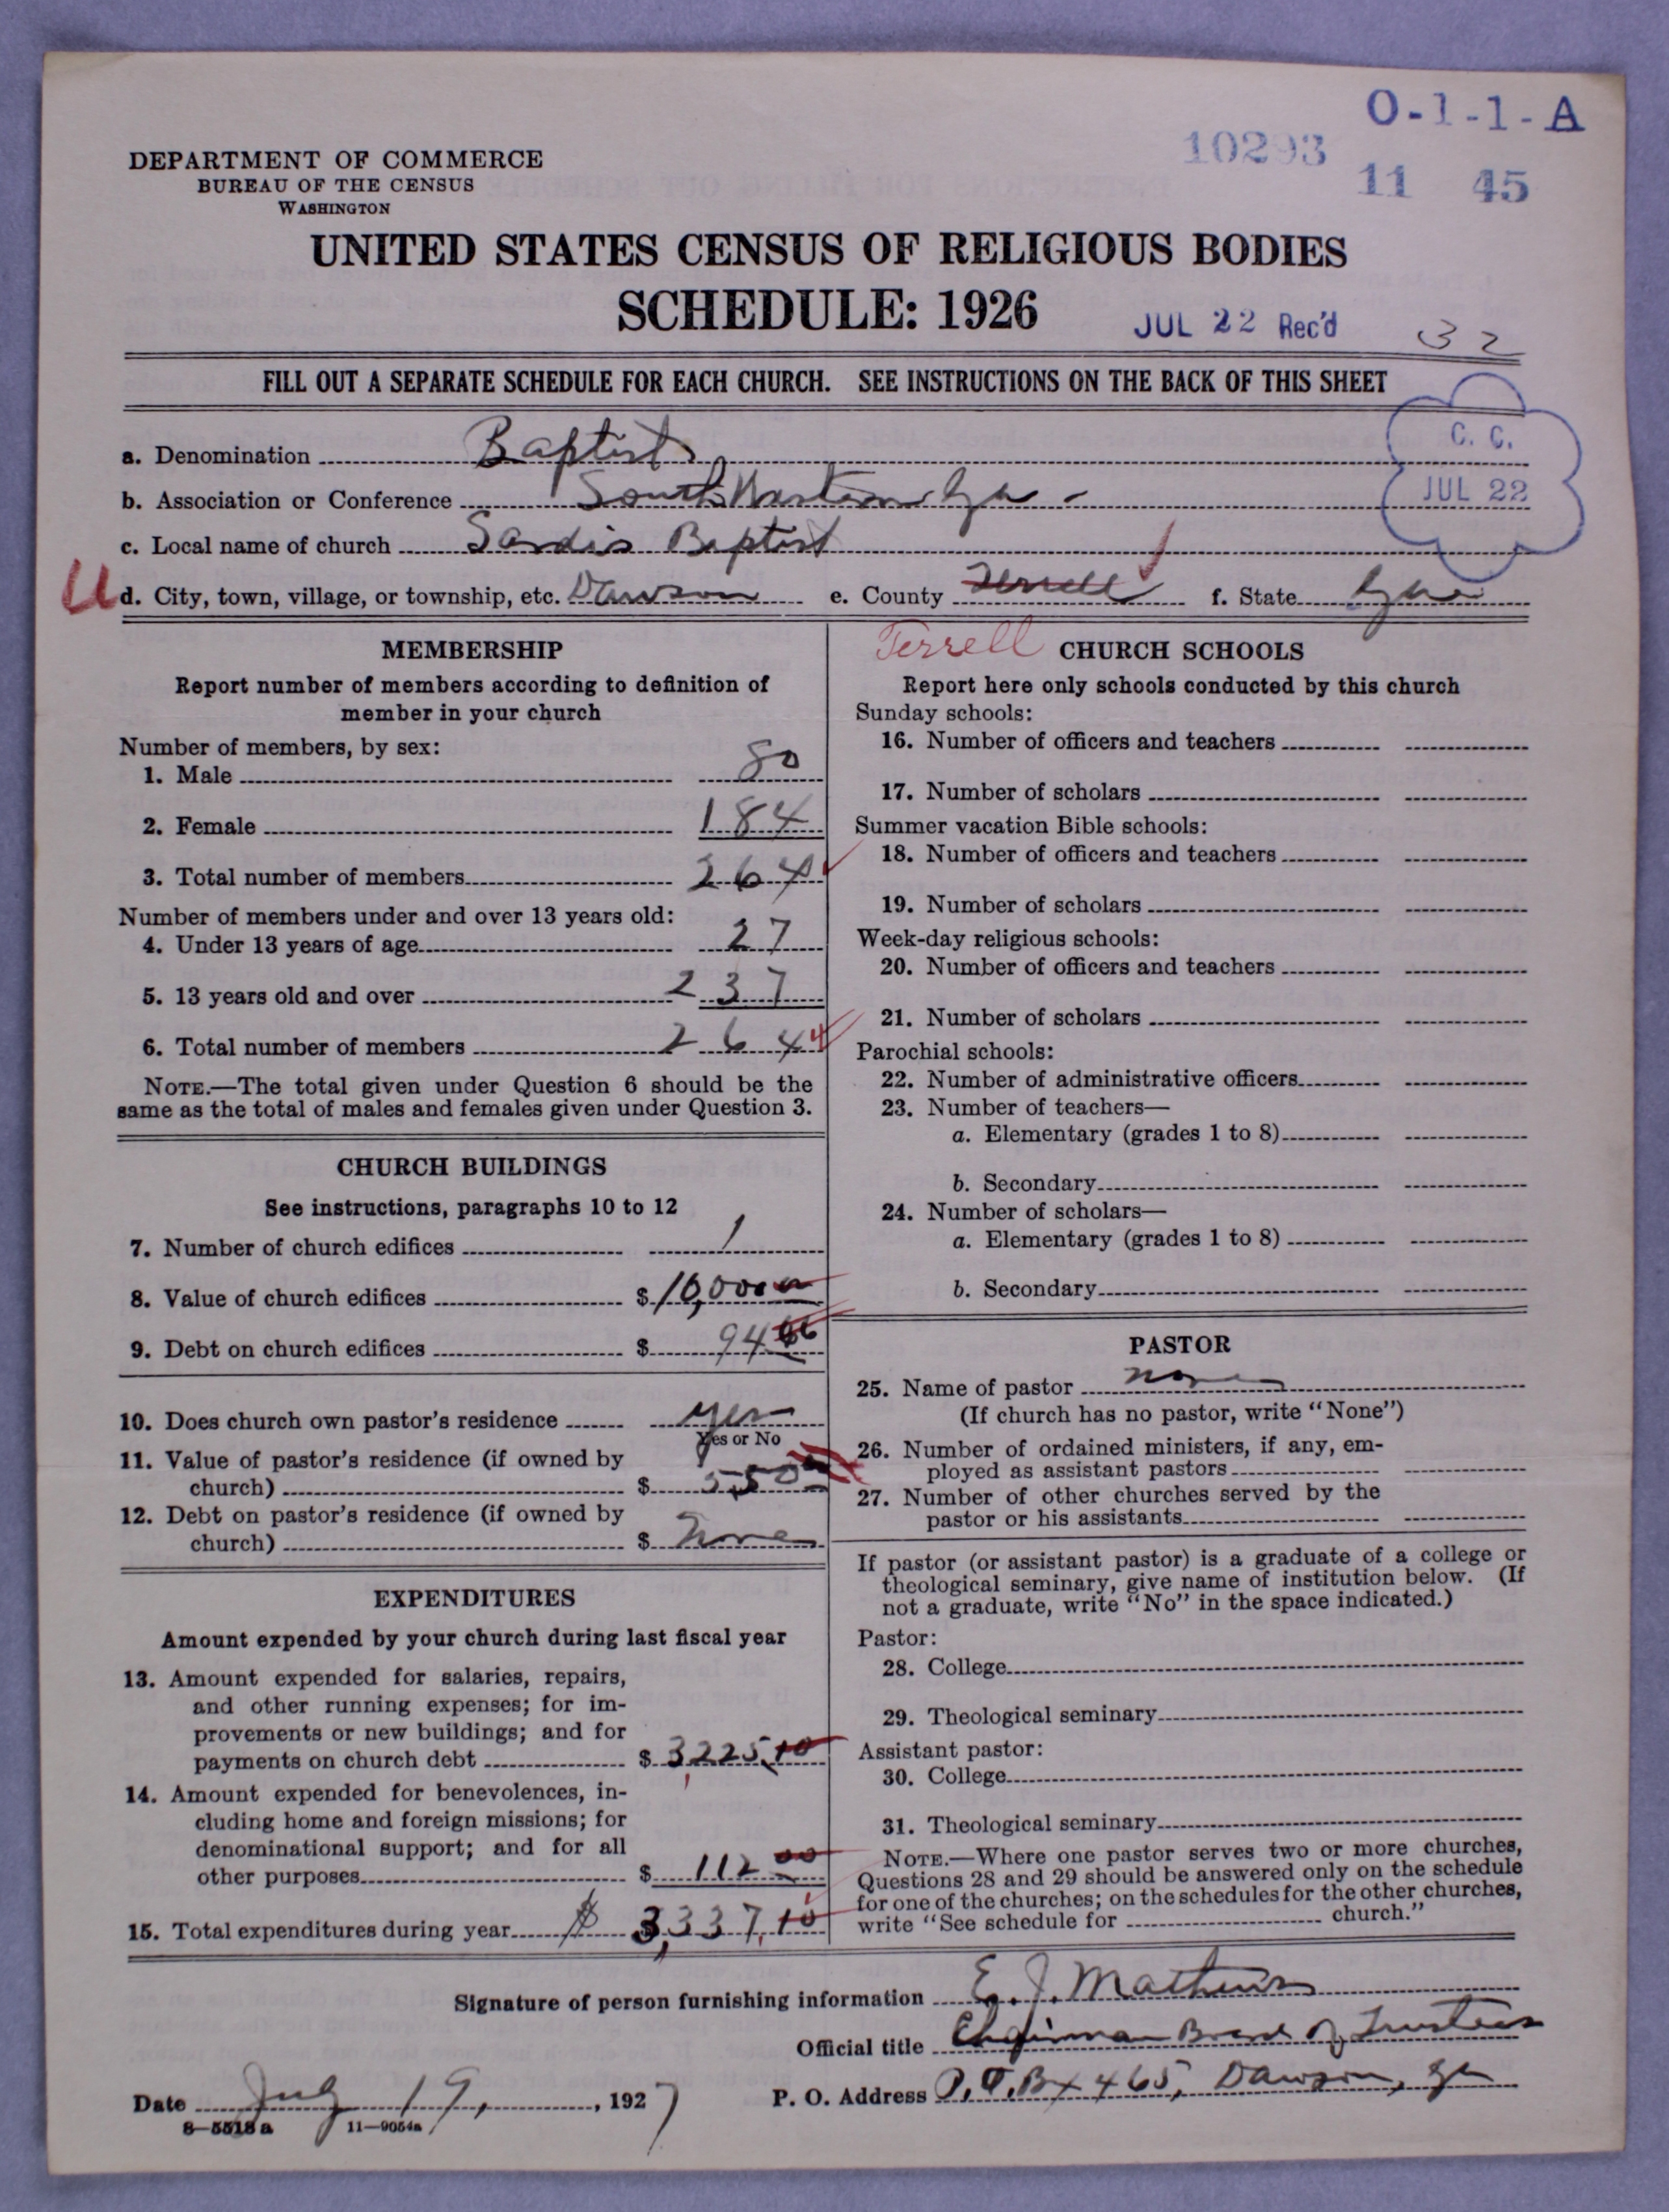 O-1-1-A
10293
11 45
DEPARTMENT OF COMMERCE
BUREAU OF THE CENSUS
WASHINGTON
UNITED STATES CENSUS OF RELIGIOUS BODIES
SCHEDULE: 1926
JUL 22 Rec'd
32
FILL OUT A SEPARATE SCHEDULE FOR EACH CHURCH. SEE INSTRUCTIONS ON THE BACK OF THIS SHEET
C. C.
JUL 22
a. Denomination Baptist
b. Association or Conference South Western Ga -
c. Local name of church Sardis Baptist
d. City, town, village, or township, etc. Dawson e. County Terrell f. State Ga
Terrell
MEMBERSHIP
Report number of members according to definition of
member in your church
Number of members, by sex:
1. Male 80
2. Female 184
3. Total number of members 264
Number of members under and over 13 years old:
4. Under 13 years of age 27
5. 13 years old and over 237
6. Total number of members 264
NOTE.—The total given under Question 6 should be the
same as the total of males and females given under Question 3.
CHURCH BUILDINGS
See instructions, paragraphs 10 to 12
7. Number of church edifices 1
8. Value of church edifices $ 10,000
9. Debt on church edifices $ 94
10. Does church own pastor's residence yes
Yes or No
11. Value of pastor's residence (if owned by
church) $
12. Debt on pastor's residence (if owned by
church) $ None
EXPENDITURES
Amount expended by your church during last fiscal year
13. Amount expended for salaries, repairs,
and other running expenses; for im-
provements or new buildings; and for
payments on church debt $ 3,225.10
14. Amount expended for benevolences, in-
cluding home and foreign missions; for
denominational support; and for all
other purposes $ 112 00
15. Total expenditures during year $ 3,337.10
CHURCH SCHOOLS
Report here only schools conducted by this church
Sunday schools:
16. Number of officers and teachers
17. Number of scholars
Summer vacation Bible schools:
18. Number of officers and teachers
19. Number of scholars
Week-day religious schools:
20. Number of officers and teachers
21. Number of scholars
Parochial schools:
22. Number of administrative officers
23. Number of teachers—
a. Elementary (grades 1 to 8)
b. Secondary
24. Number of scholars—
a. Elementary (grades 1 to 8)
b. Secondary
PASTOR
25. Name of pastor none
(If church has no pastor, write "None")
26. Number of ordained ministers, if any, em-
ployed as assistant pastors
27. Number of other churches served by the
pastor or his assistants
If pastor (or assistant pastor) is a graduate of a college or
theological seminary, give name of institution below. (If
not a graduate, write "No" in the space indicated.)
Pastor:
28. College
29. Theological seminary
Assistant pastor:
30. College
31. Theological seminary
NOTE.—Where one pastor serves two or more churches,
Questions 28 and 29 should be answered only on the schedule
for one of the churches; on the schedules for the other churches,
write "See schedule for church."
Signature of person furnishing information E. J. Mathews
Official title Chairman Board of Trustees
Date July 19, 1927 P. O. Address P. O. Bx 465, Dawson, Ga
8-5518 a 11-9054a